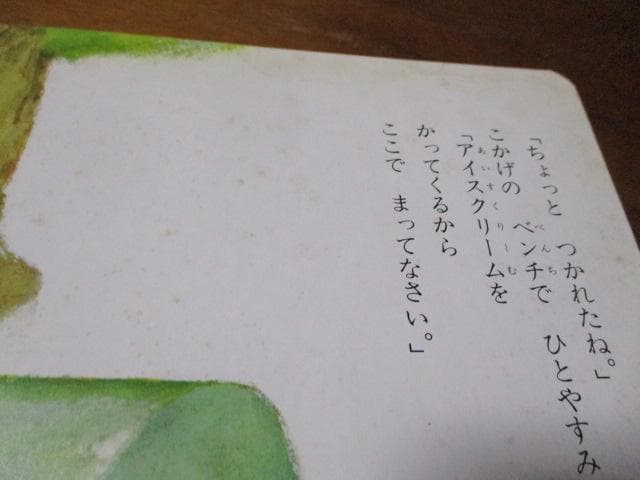 「ちょっと　つかれたね。」
こかげの　ベンチで　ひとやすみ
「アイスクリームを
かってくるから
ここで　まってなさい。」